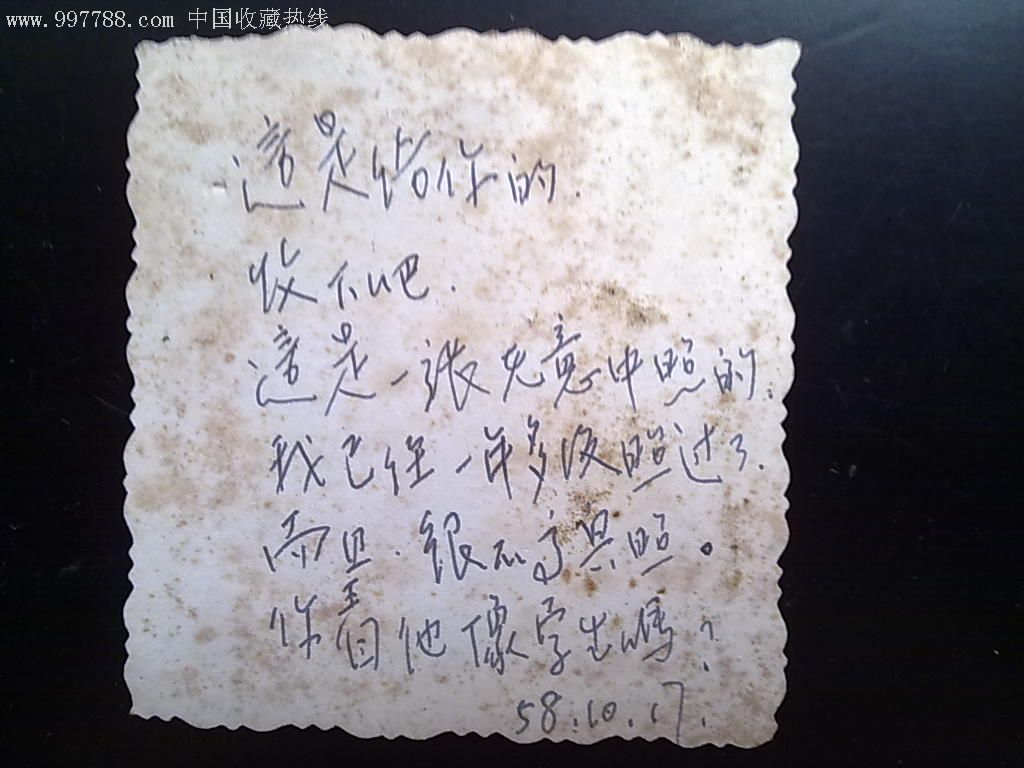 www.997788.com 中国收藏热线
這是给你的.
收下吧.
這是一張无意中照的.
我已经一年多没照过了.
而且.很不高兴照。
你看他像学生嗎?
58.10.17.